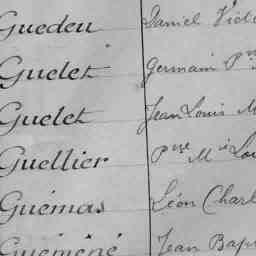 Guedeu Daniel Victo
Guelet Germain Pre
Guelet Jean Louis M
Guellier Pre Mie Lou
Guémas Léon Charl
Guéméné Jean Bap